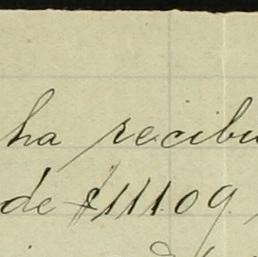 ha recibi
de $111.09